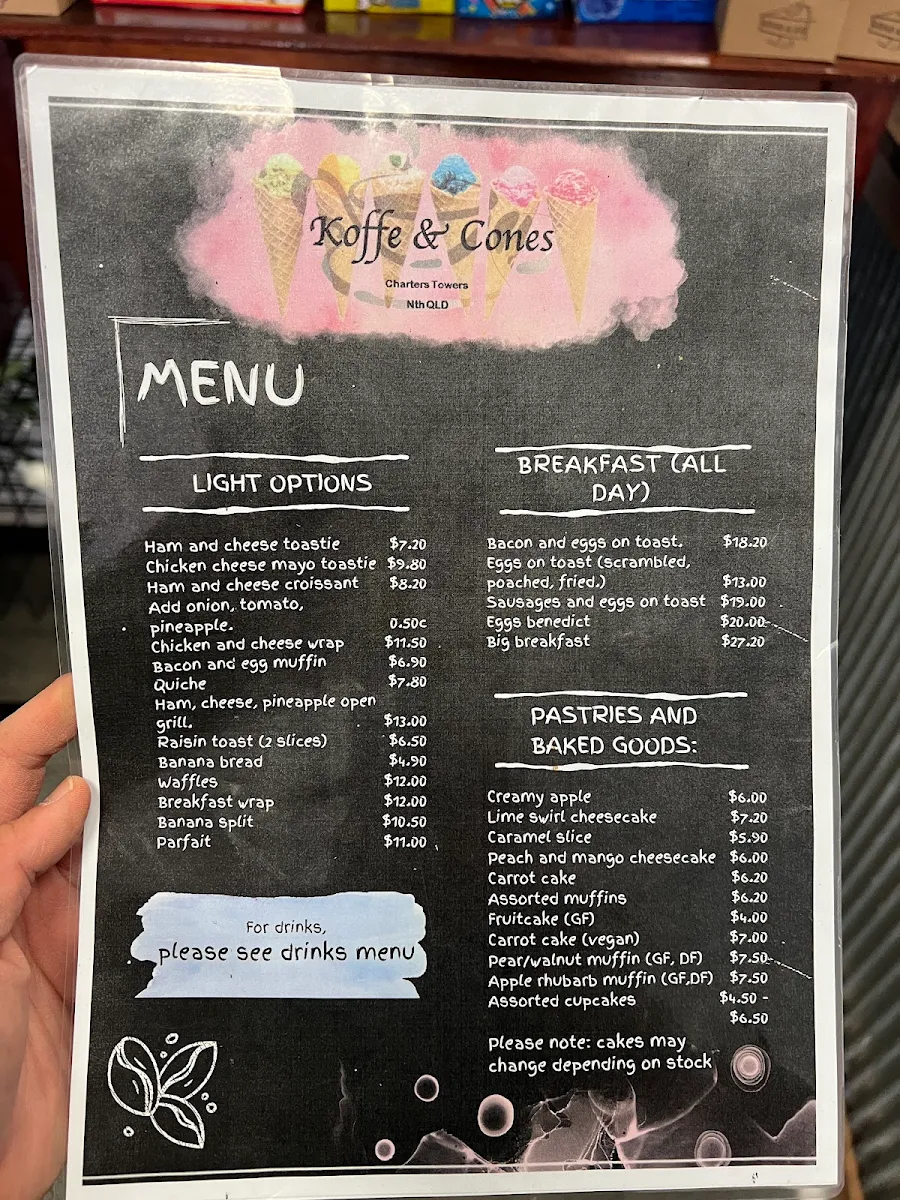 Koffe & Cones
Charters Towers
Nth QLD
MENU
LIGHT OPTIONS
Ham and cheese toastie $7.20
Chicken cheese mayo toastie $9.80
Ham and cheese croissant $8.20
Add onion, tomato,
pineapple. 0.50c
Chicken and cheese wrap $11.50
Bacon and egg muffin $6.90
Quiche $7.80
Ham, cheese, pineapple open
grill. $13.00
Raisin toast (2 slices) $6.50
Banana bread $4.90
Waffles $12.00
Breakfast wrap $12.00
Banana split $10.50
Parfait $11.00
For drinks,
please see drinks menu
BREAKFAST (ALL
DAY)
Bacon and eggs on toast. $18.20
Eggs on toast (scrambled,
poached, fried.) $13.00
Sausages and eggs on toast $19.00
Eggs benedict $20.00
Big breakfast $27.20
PASTRIES AND
BAKED GOODS:
Creamy apple $6.00
Lime swirl cheesecake $7.20
Caramel slice $5.90
Peach and mango cheesecake $6.00
Carrot cake $6.20
Assorted muffins $6.20
Fruitcake (GF) $4.00
Carrot cake (vegan) $7.00
Pear/walnut muffin (GF, DF) $7.50
Apple rhubarb muffin (GF,DF) $7.50
Assorted cupcakes $4.50 -
$6.50
Please note: cakes may
change depending on stock